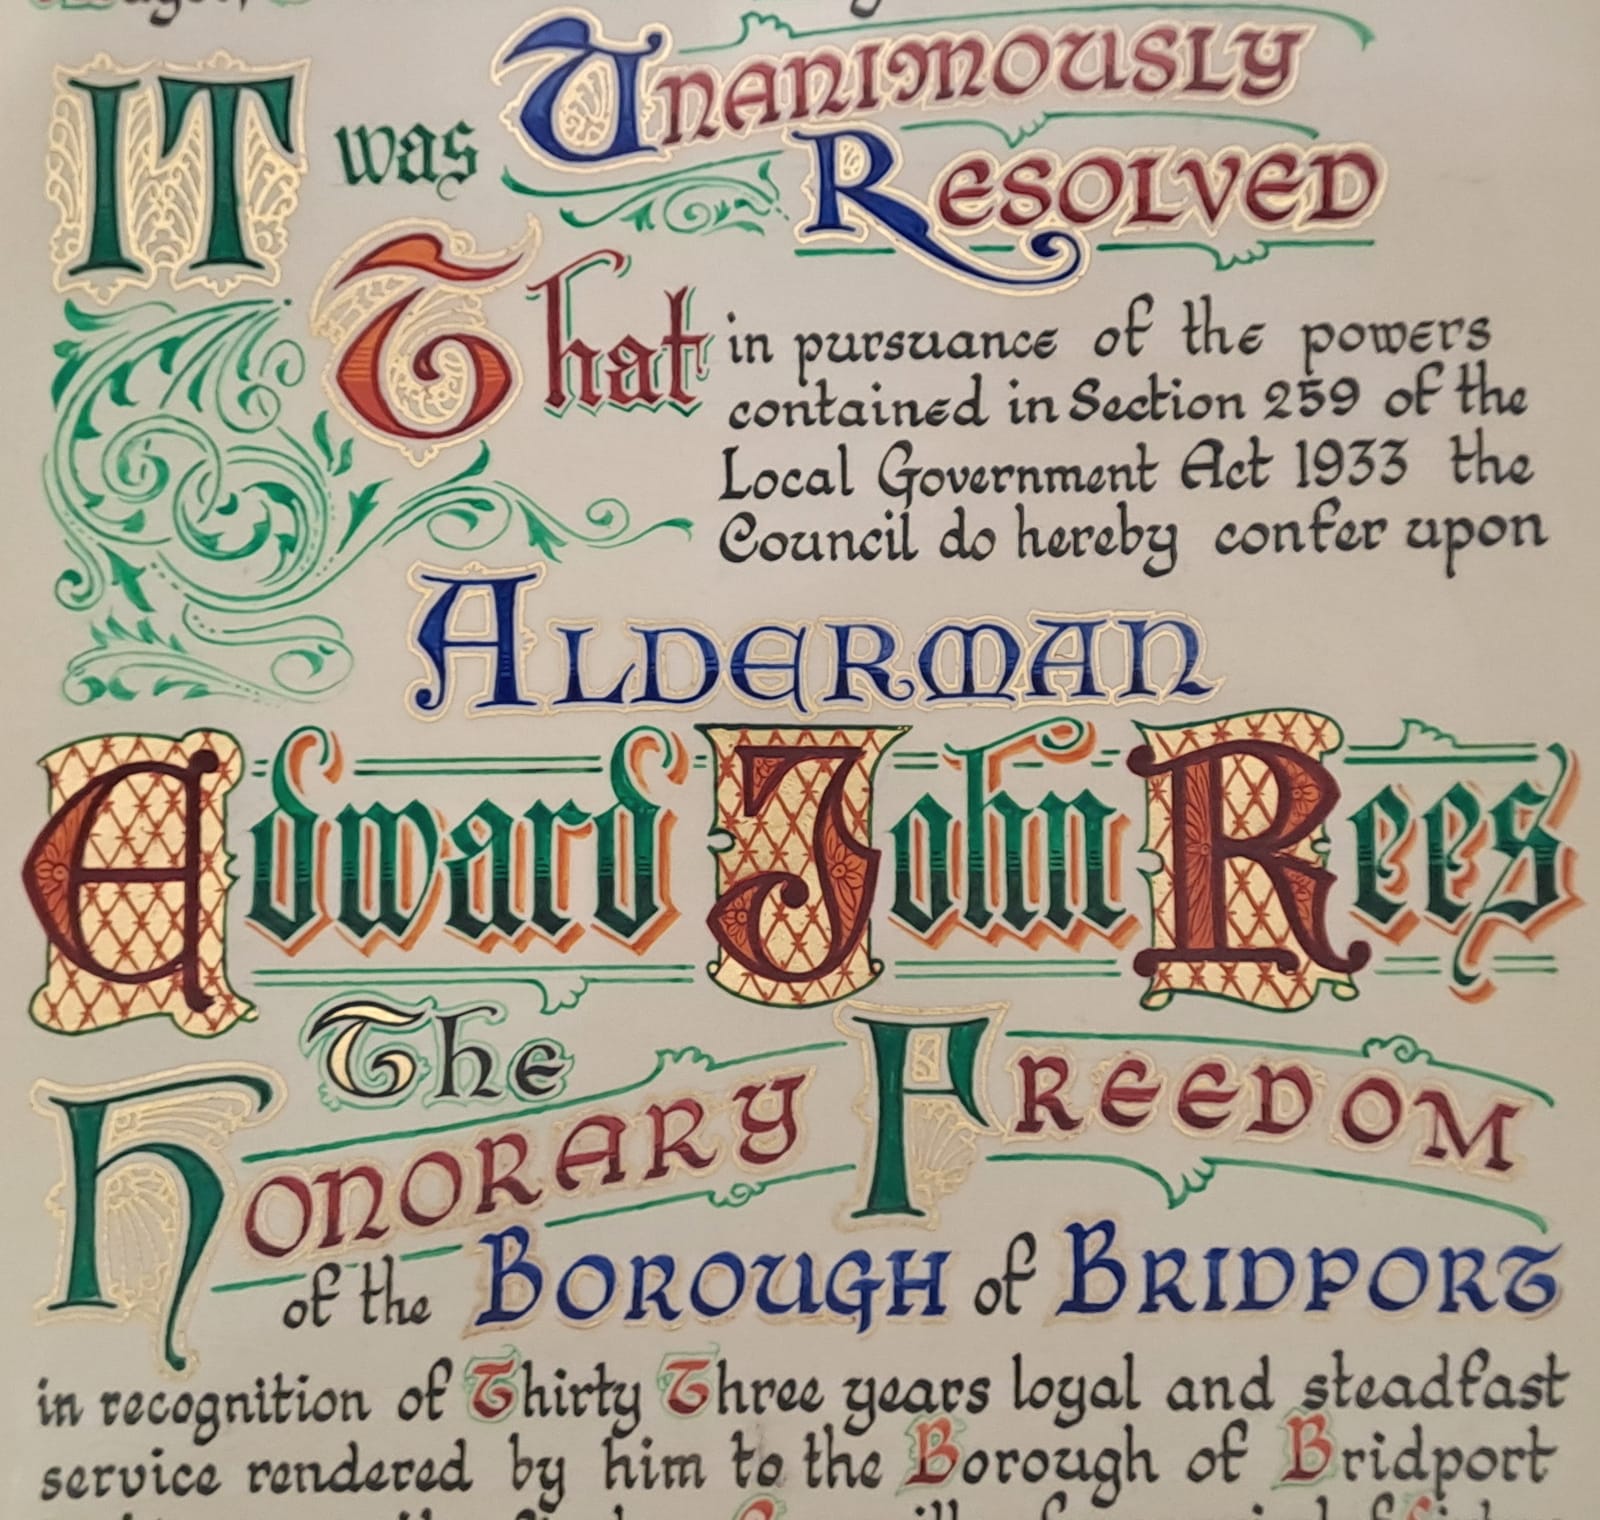 IT was Unanimously
Resolved
That in pursuance of the powers
contained in Section 259 of the
Local Government Act 1933 the
Council do hereby confer upon
Alderman
Edward John Rees
The
Honorary Freedom
of the Borough of Bridport
in recognition of Thirty Three years loyal and steadfast
service rendered by him to the Borough of Bridport